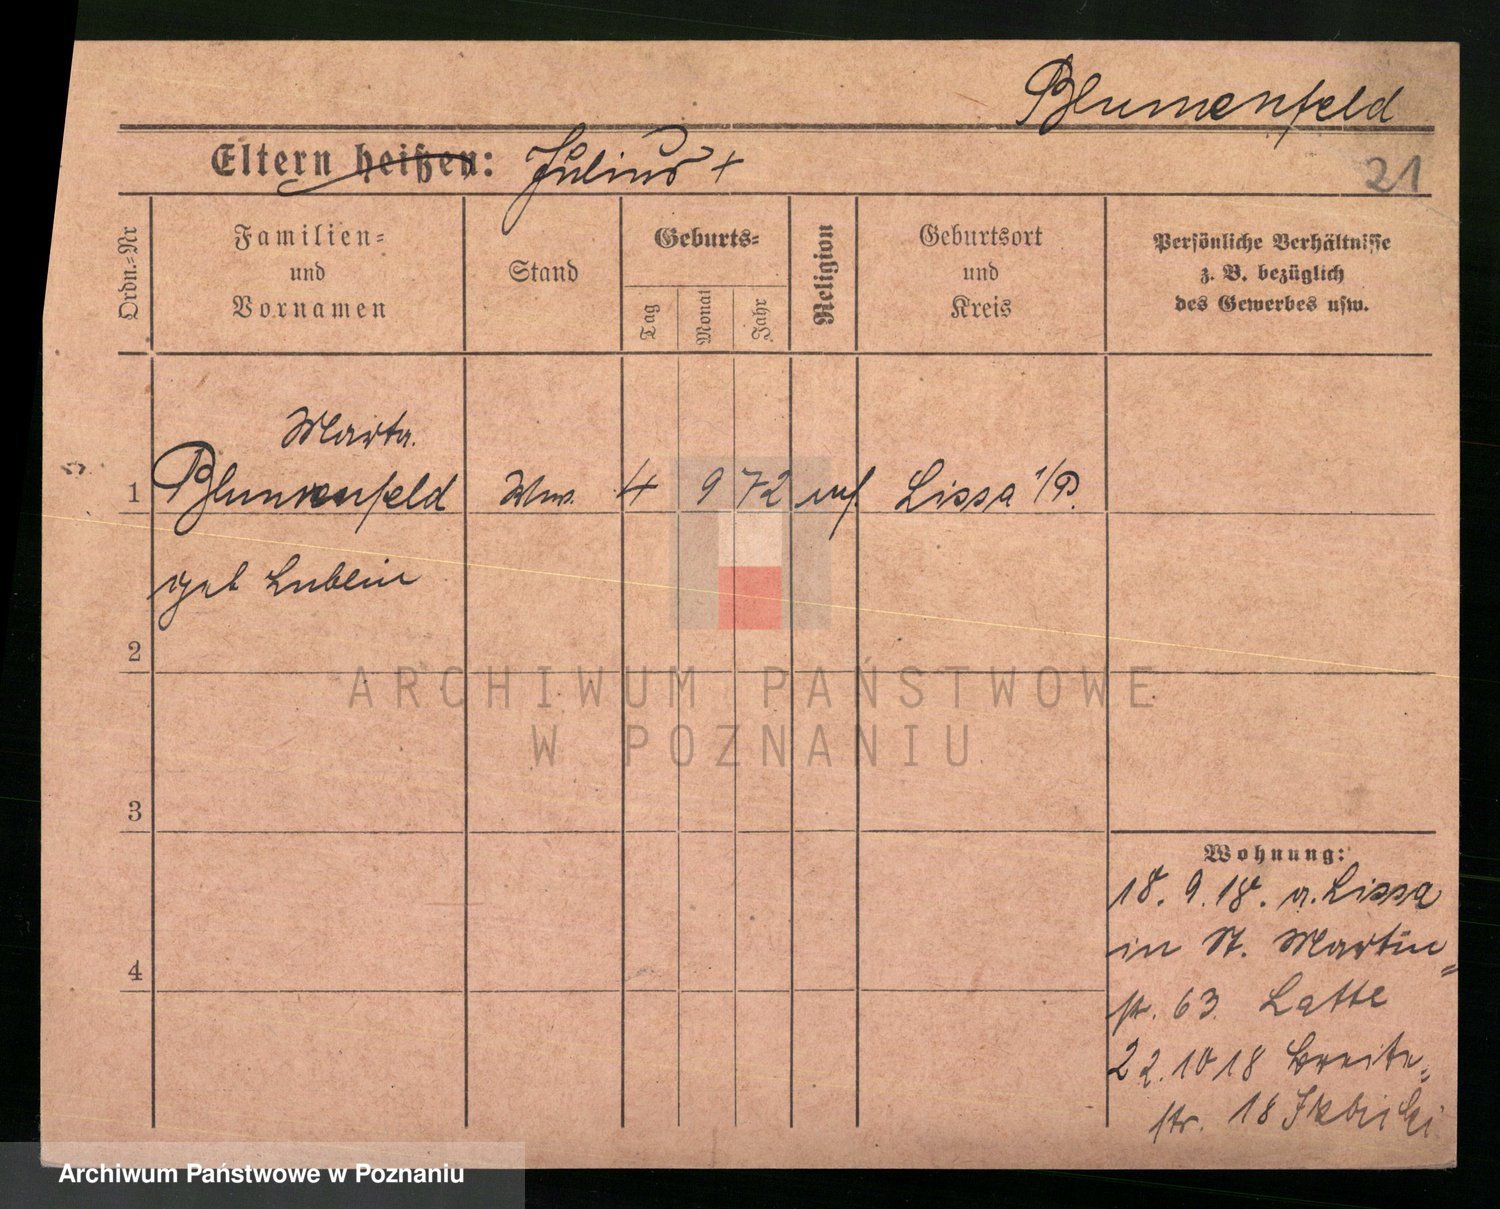 Blumenfeld
Eltern heißen: Julius +
21
Ordn.=Nr
Familien=
und
Vornamen
Stand
Geburts=
Tag
Monat
Jahr
Religion
Geburtsort
und
Kreis
Persönliche Verhältnisse
z. B. bezüglich
des Gewerbes usw.
Marta.
1 Blumenfeld Ww. 4 9 72 Lissa i/P.
geb Lublin
2
ARCHIWUM PAŃSTWOWE
W POZNANIU
3
Wohnung:
18. 9. 18. a. Lissa
in St. Martin=
str. 63. Latte
4
22. 10 18 Breite=
str. 18
Archiwum Państwowe w Poznaniu